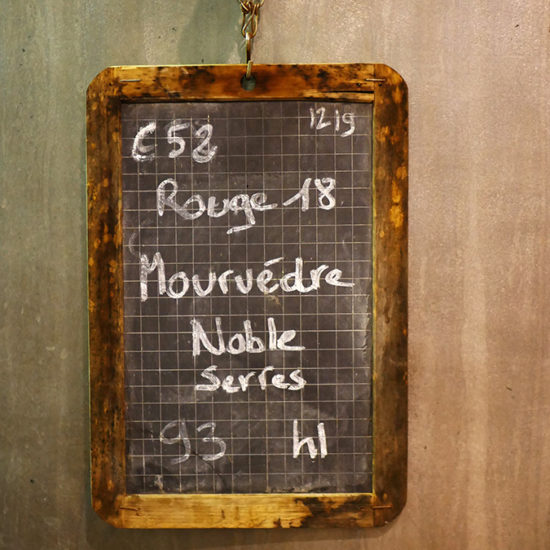 C 52 1219
Rouge 18
Mourvédre
Noble
Serres
93 hl